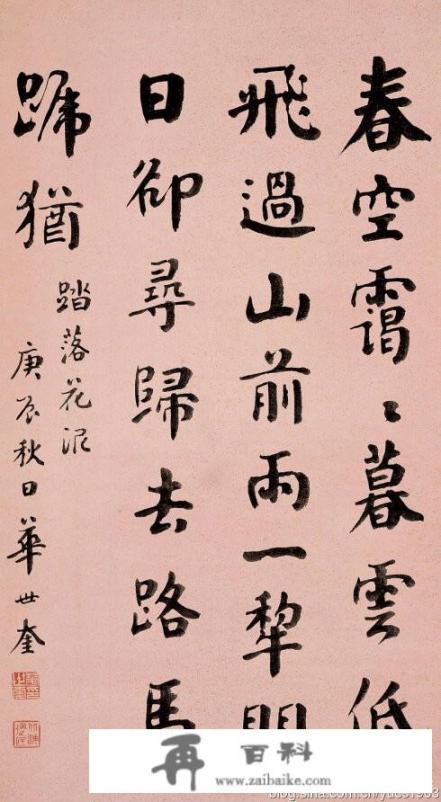 春空靄〻暮雲低
飛過山前雨一犂明
日卻尋歸去路馬
蹏猶
踏落花泥
庚辰秋日華世奎
再百科
www.zaibaike.com